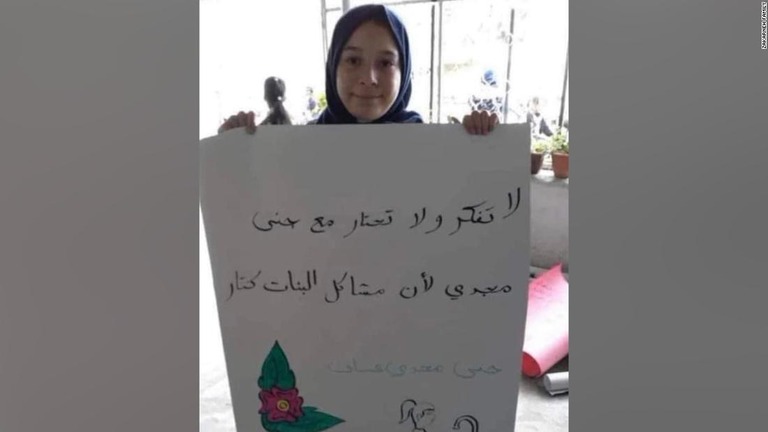 لا تفكر ولا تحتار مع جنى
مجدي لأن مشاكل البنات كتار
جنى مجدي عساف
ZAKARNEH FAMILY